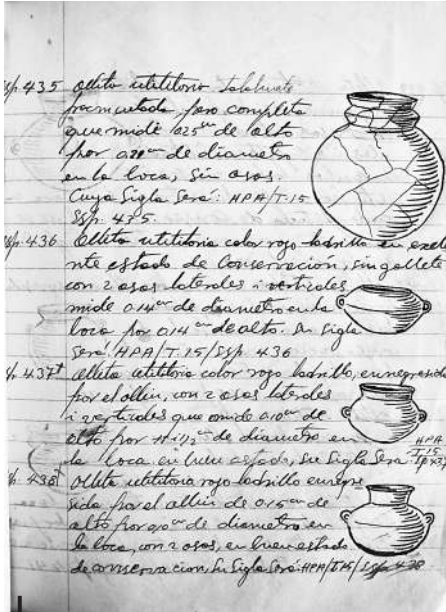 Ssp. 435 Ollita utilitaria
fracmentada, pero completa
que mide 0.25 cm de alto
por 0.20 cm de diametro
en la boca, sin asas.
Cuya Sigla Será: HPA/T.15
Ssp. 435.
Ssp. 436 Ollita utilitaria color rojo ladrillo en exele
nte estado de Conservación, sin gollete
con 2 asas laterales i verticales
mide 0.14 cm de diametro en la
boca por 0.14 cm de alto. Su Sigla
Será: HPA/T.15/Ssp. 436
437 Ollita utilitaria color rojo ladrillo, ennegresida
por el ollin, con 2 asas laterales
i verticales que mide 0.10 cm de
alto por de diametro en HPA
la boca en buen estado, Su Sigla Sera: T.15
438 Ollita utilitaria rojo ladrillo enegre
sida por el ollin de 0.15 cm de
alto por 0.10 cm de diametro en
la boca, con 2 asas, en buen estado
de conservacion, Su Sigla Será: HPA/T.15/Ssp 438